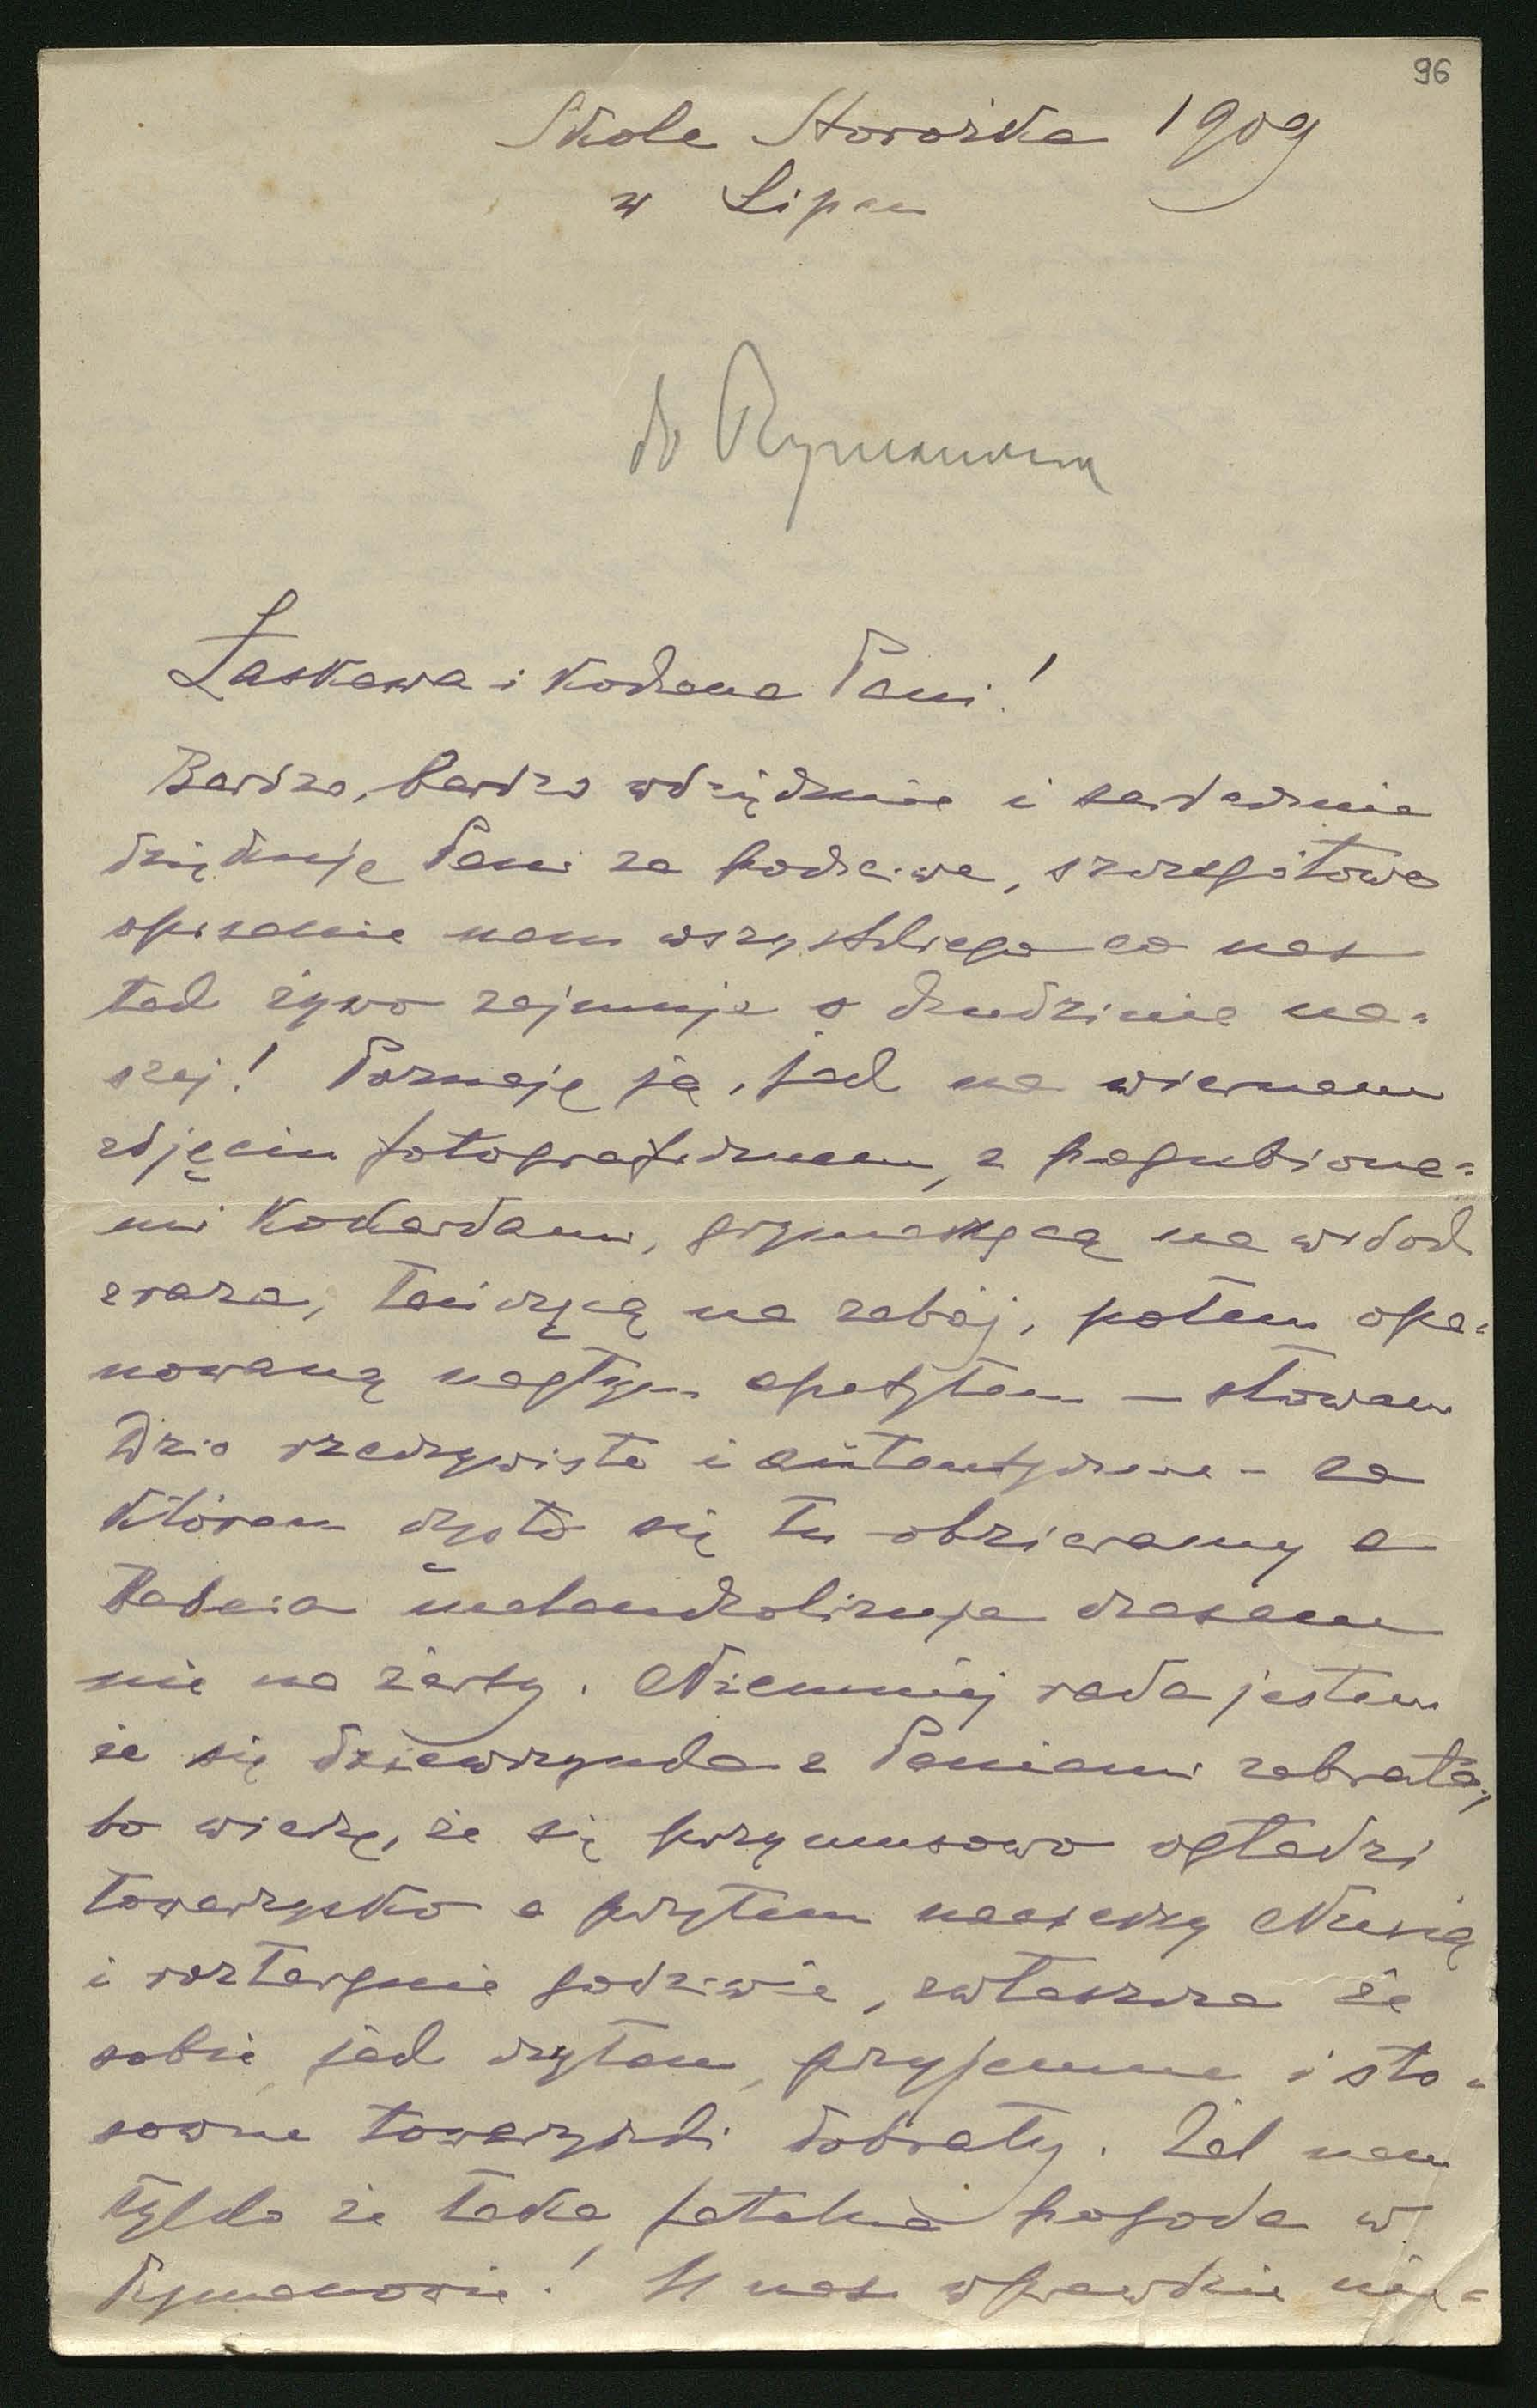 96
Skole Storożka 1909
w Lipcu
do Rymanowa
Łaskawa i Kochana Pani!
Bardzo, bardzo wdzięcznie i serdecznie
dziękuję Pani za poczciwe, szczegółowe
opisanie nam wszystkiego co nas
tak żywo zajmuje o dziudzinie na=
szej! Poznaję ją, jak na wiernem
zdjęciu fotograficznem, z pogubione=
mi kokardami, grymaszącą na widok
zraza, tańczącą na zabój, potem opa=
nowaną nagłym apetytem – słowem
Dzio rzeczywiste i autentyczne – za
którem czysto się tu obzieramy a
Babcia melancholizuje czasem
nie na żarty. Niemniej rada jestem
że się dziewczynka z Paniami zabrała,
bo wierzę, że się przymusowo ogładzi
towarzysko a przytem nacieszy Nusią
i roztargnie godziwie, zwłaszcza że
sobie, jak czytam, przyjemne i sto=
sowne towarzyszki dobrały. Żal nam
tylko że taka fatalna pogoda w
Rymanowie! U nas wprawdzie nie=